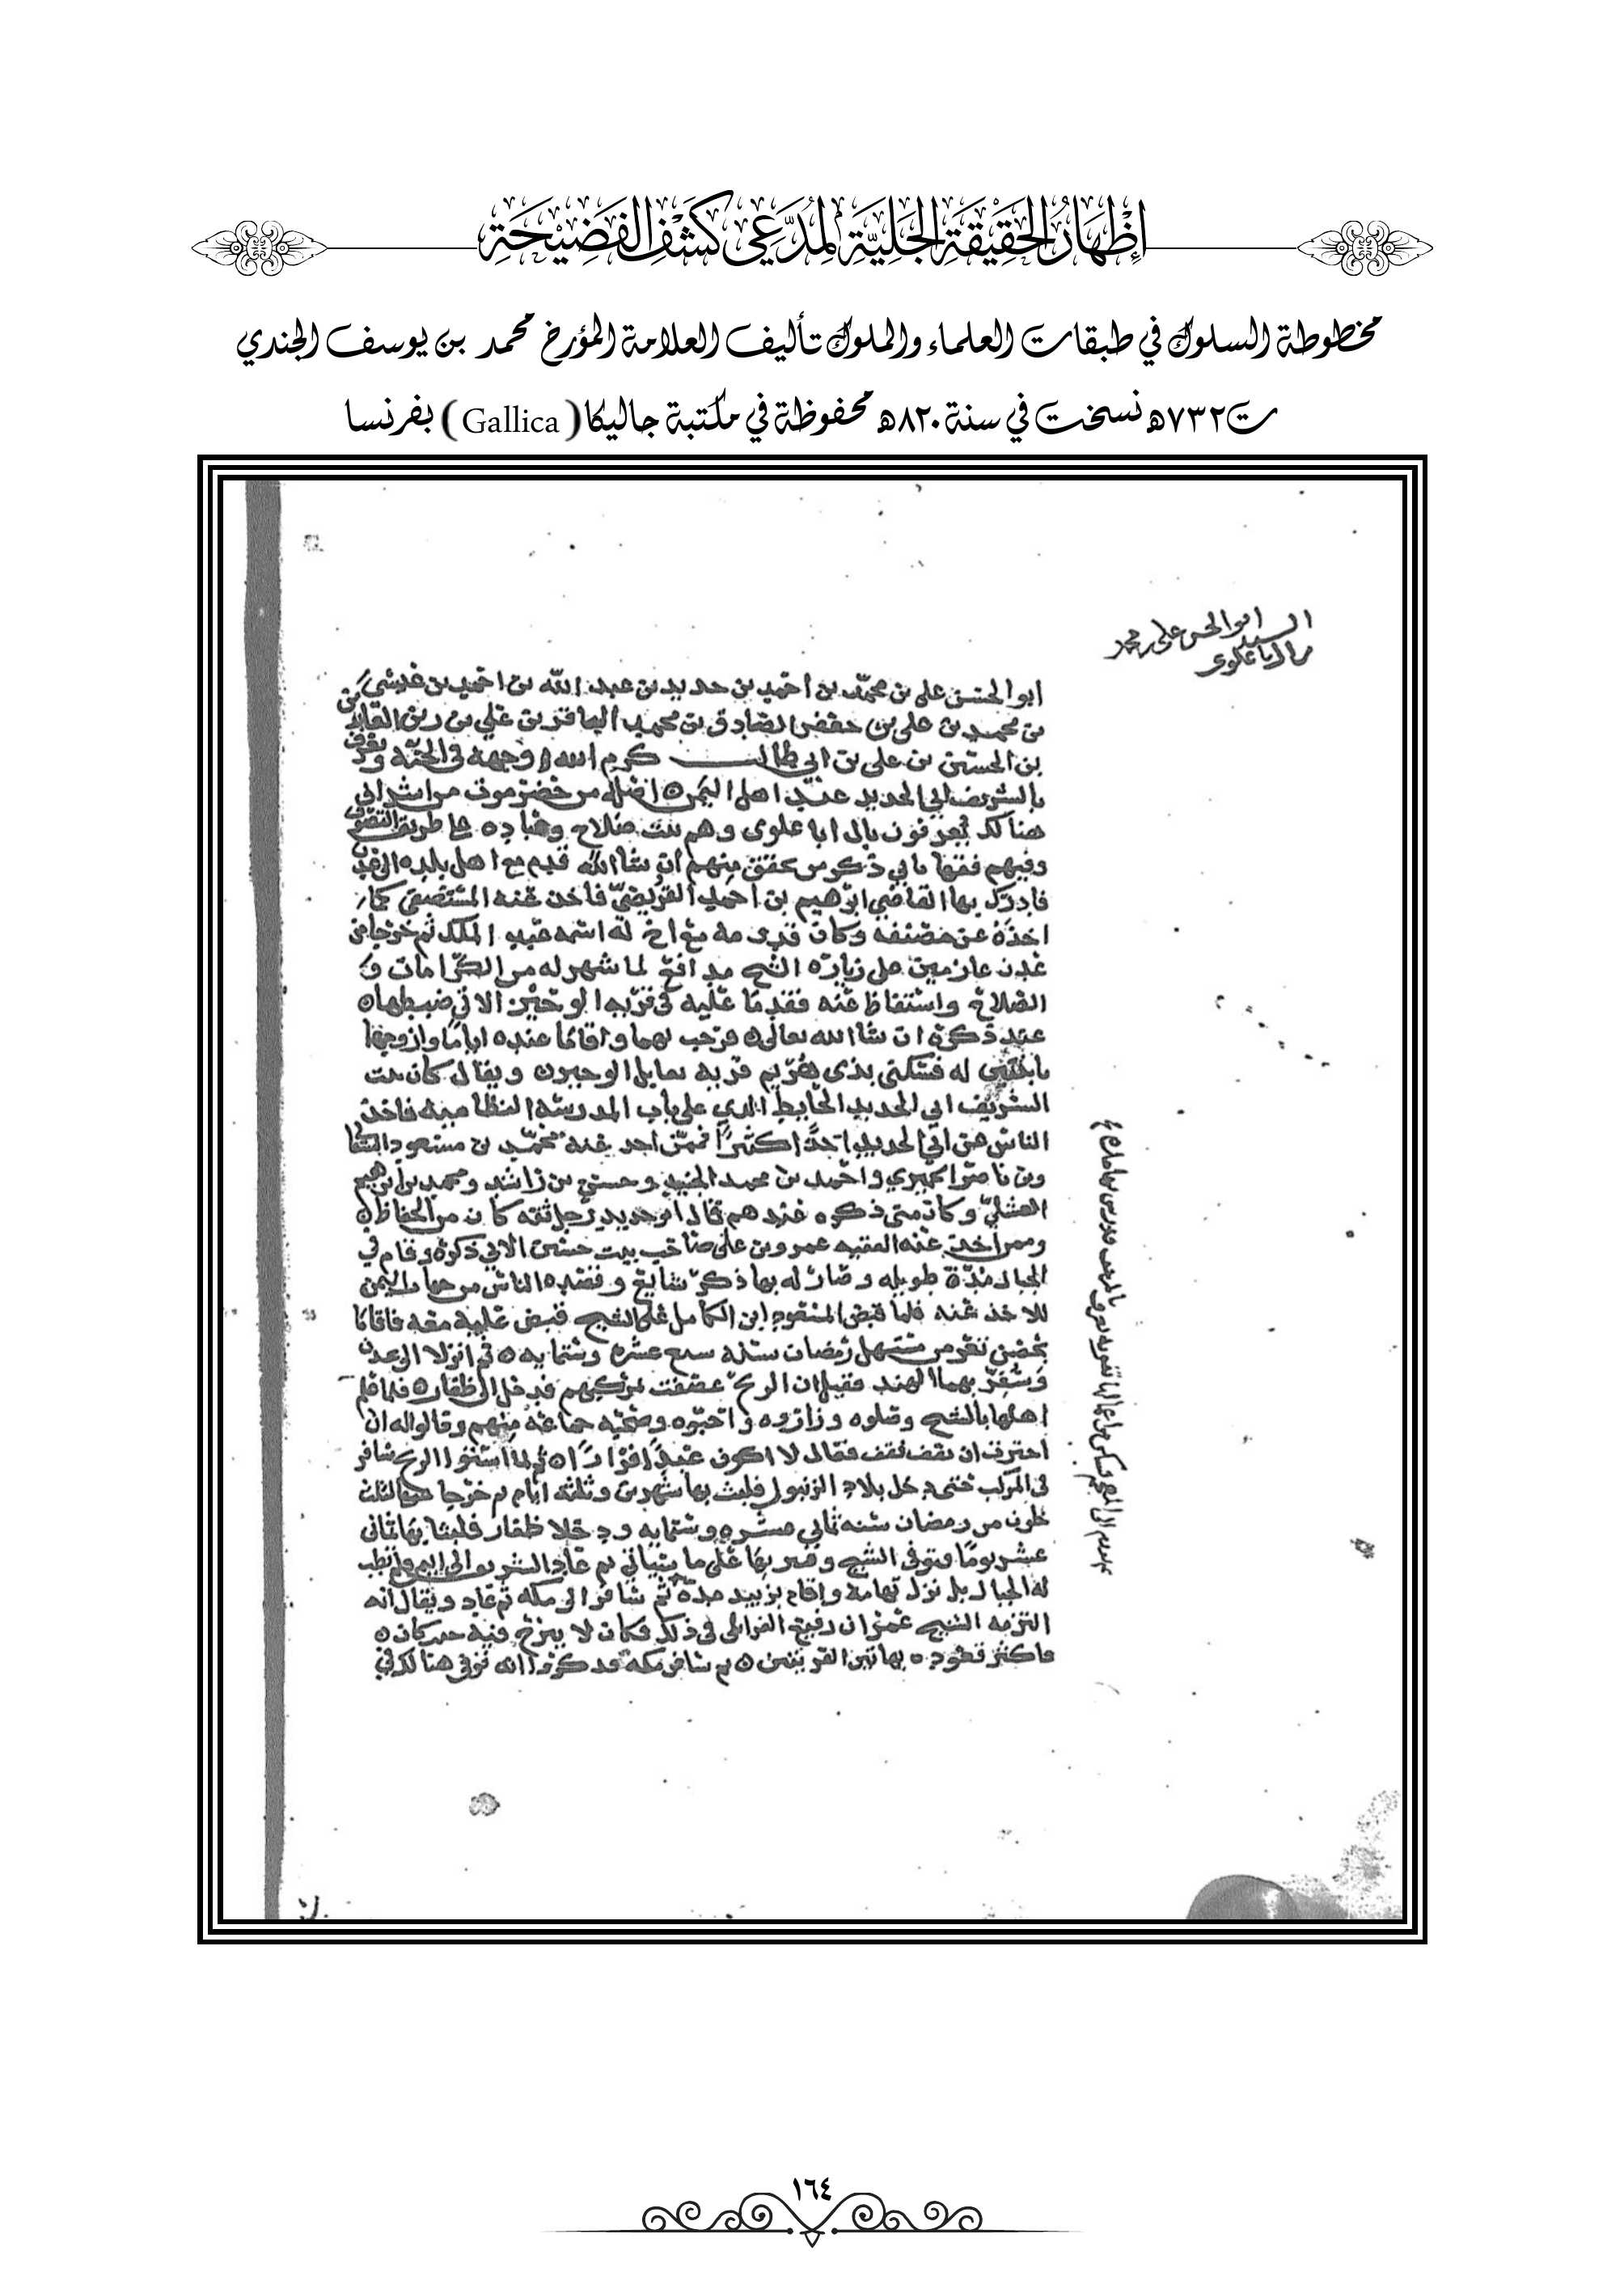 إِظْهَارُ الْحَقِيْقَةِ الْجَلِيَّةِ لِمُدَّعِي كَشْفِ الْفَضِيْحَةِ
مخطوطة السلوك في طبقات العلماء والملوك تأليف العلامة المؤرخ محمد بن يوسف الجندي
ت ٧٣٢ه نسخت في سنة ٨٢٠ه محفوظة في مكتبة جاليكا (Gallica) بفرنسا
السيد ابوالحسن علي بن محمد
من ال ابا علوي
أبو الحسن علي بن محمد بن احمد بن حديد بن عبد الله بن احمد بن عيسى
بن محمد بن علي بن جعفر الصادق بن محمد الباقر بن علي بن زين العابدين
بن الحسين بن علي بن ابي طالب كرم الله وجهه في الجنة ويعرف
بالشريف ابي الحديد عند اهل اليمن اصله من حضرموت من اشراف
هنالك يعرفون بال ابا علوي وهم بيت صلاح وعباده على طريق التصوف
وفيهم فقها ياتي ذكر من تحقق منهم ان شا الله قدم مع اهل بلده الى عدن
فادرك بها القاضي ابرهيم بن احمد القريضي فاخذ عنه المستصفى كما
اخذه عن مصنفه وكان قدومه مع اخ له اسمه عبد الملك ثم خرجا من
عدن عازمين على زيارة الشيخ مدافع لما شهر له من الكرامات و
الصلاح واستفاض عنه فقدما عليه في قريه الوحيز الاتي ضبطها
عند ذكره ان شا الله تعالى فرحب بهما واقاما عنده اياما وازوجهما
بابنتين له فسكنى بذي هزيم قريه تقابل الوحيز ويقال كان بيت
الشريف ابي الحديد الحايط الذي على باب المدرسه النظاميه فاخذ
الناس عن ابي الحديد اخذا كثيرا فممن اخذ عنه محمد بن مسعود السفالي
وبن ناصر الحميري واحمد بن محمد الجنيد وحسن بن راشد ومحمد بن ابرهيم
الفشلي وكان متى ذكره عندهم قال ابو حديد رجل ثقه كان من الحفاظ
وممن اخذ عنه الفقيه عمرو بن علي صاحب بيت حسين الاتي ذكره وقام في
الجبال مدة طويله وصار له بها ذكر شايع وقصده الناس من جهات اليمن
للاخذ عنه فلما قبض المسعود ابن الكامل على الشيخ قبض عليه معه فاقاما
بحصن تعز من مستهل رمضان سنه سبع عشره وستمايه ثم انزلا الى عدن
وسفر بهما الهند فقيل ان الريح عصفت بمركبهم فدخل الى ظفار فلما علم
اهلها بالشيخ وصلوه وزاروه واحبوه وصحبه جماعه منهم وقالوا له ان
احببت ان تقف فقف فقال لا اكون عبدا فرارا ثم لما استوا الريح سافر
في المركب حتى دخل بلاد فلبث بها شهرين وثلثه ايام ثم خرجا منها لثلث
خلون من رمضان سنه ثماني عشره وستمايه ودخلا ظفار فلبثا بها ثماني
عشر يوما وتوفي الشيخ وقبر بها على ما سياتي ثم عاد الشريف الى اليمن ولم تطب
له الجبال بل نزل تهامة واقام بزبيد مدة ثم سافر الى مكه ثم عاد ويقال انه
التزمه الشيخ عمران رفيع في ذلك فكان لا يبرح فيه حيث كان
واكثر قعوده بهاتين القريتين ثم سافر مكه فذكروا انه توفي هنالك في
١٦٤